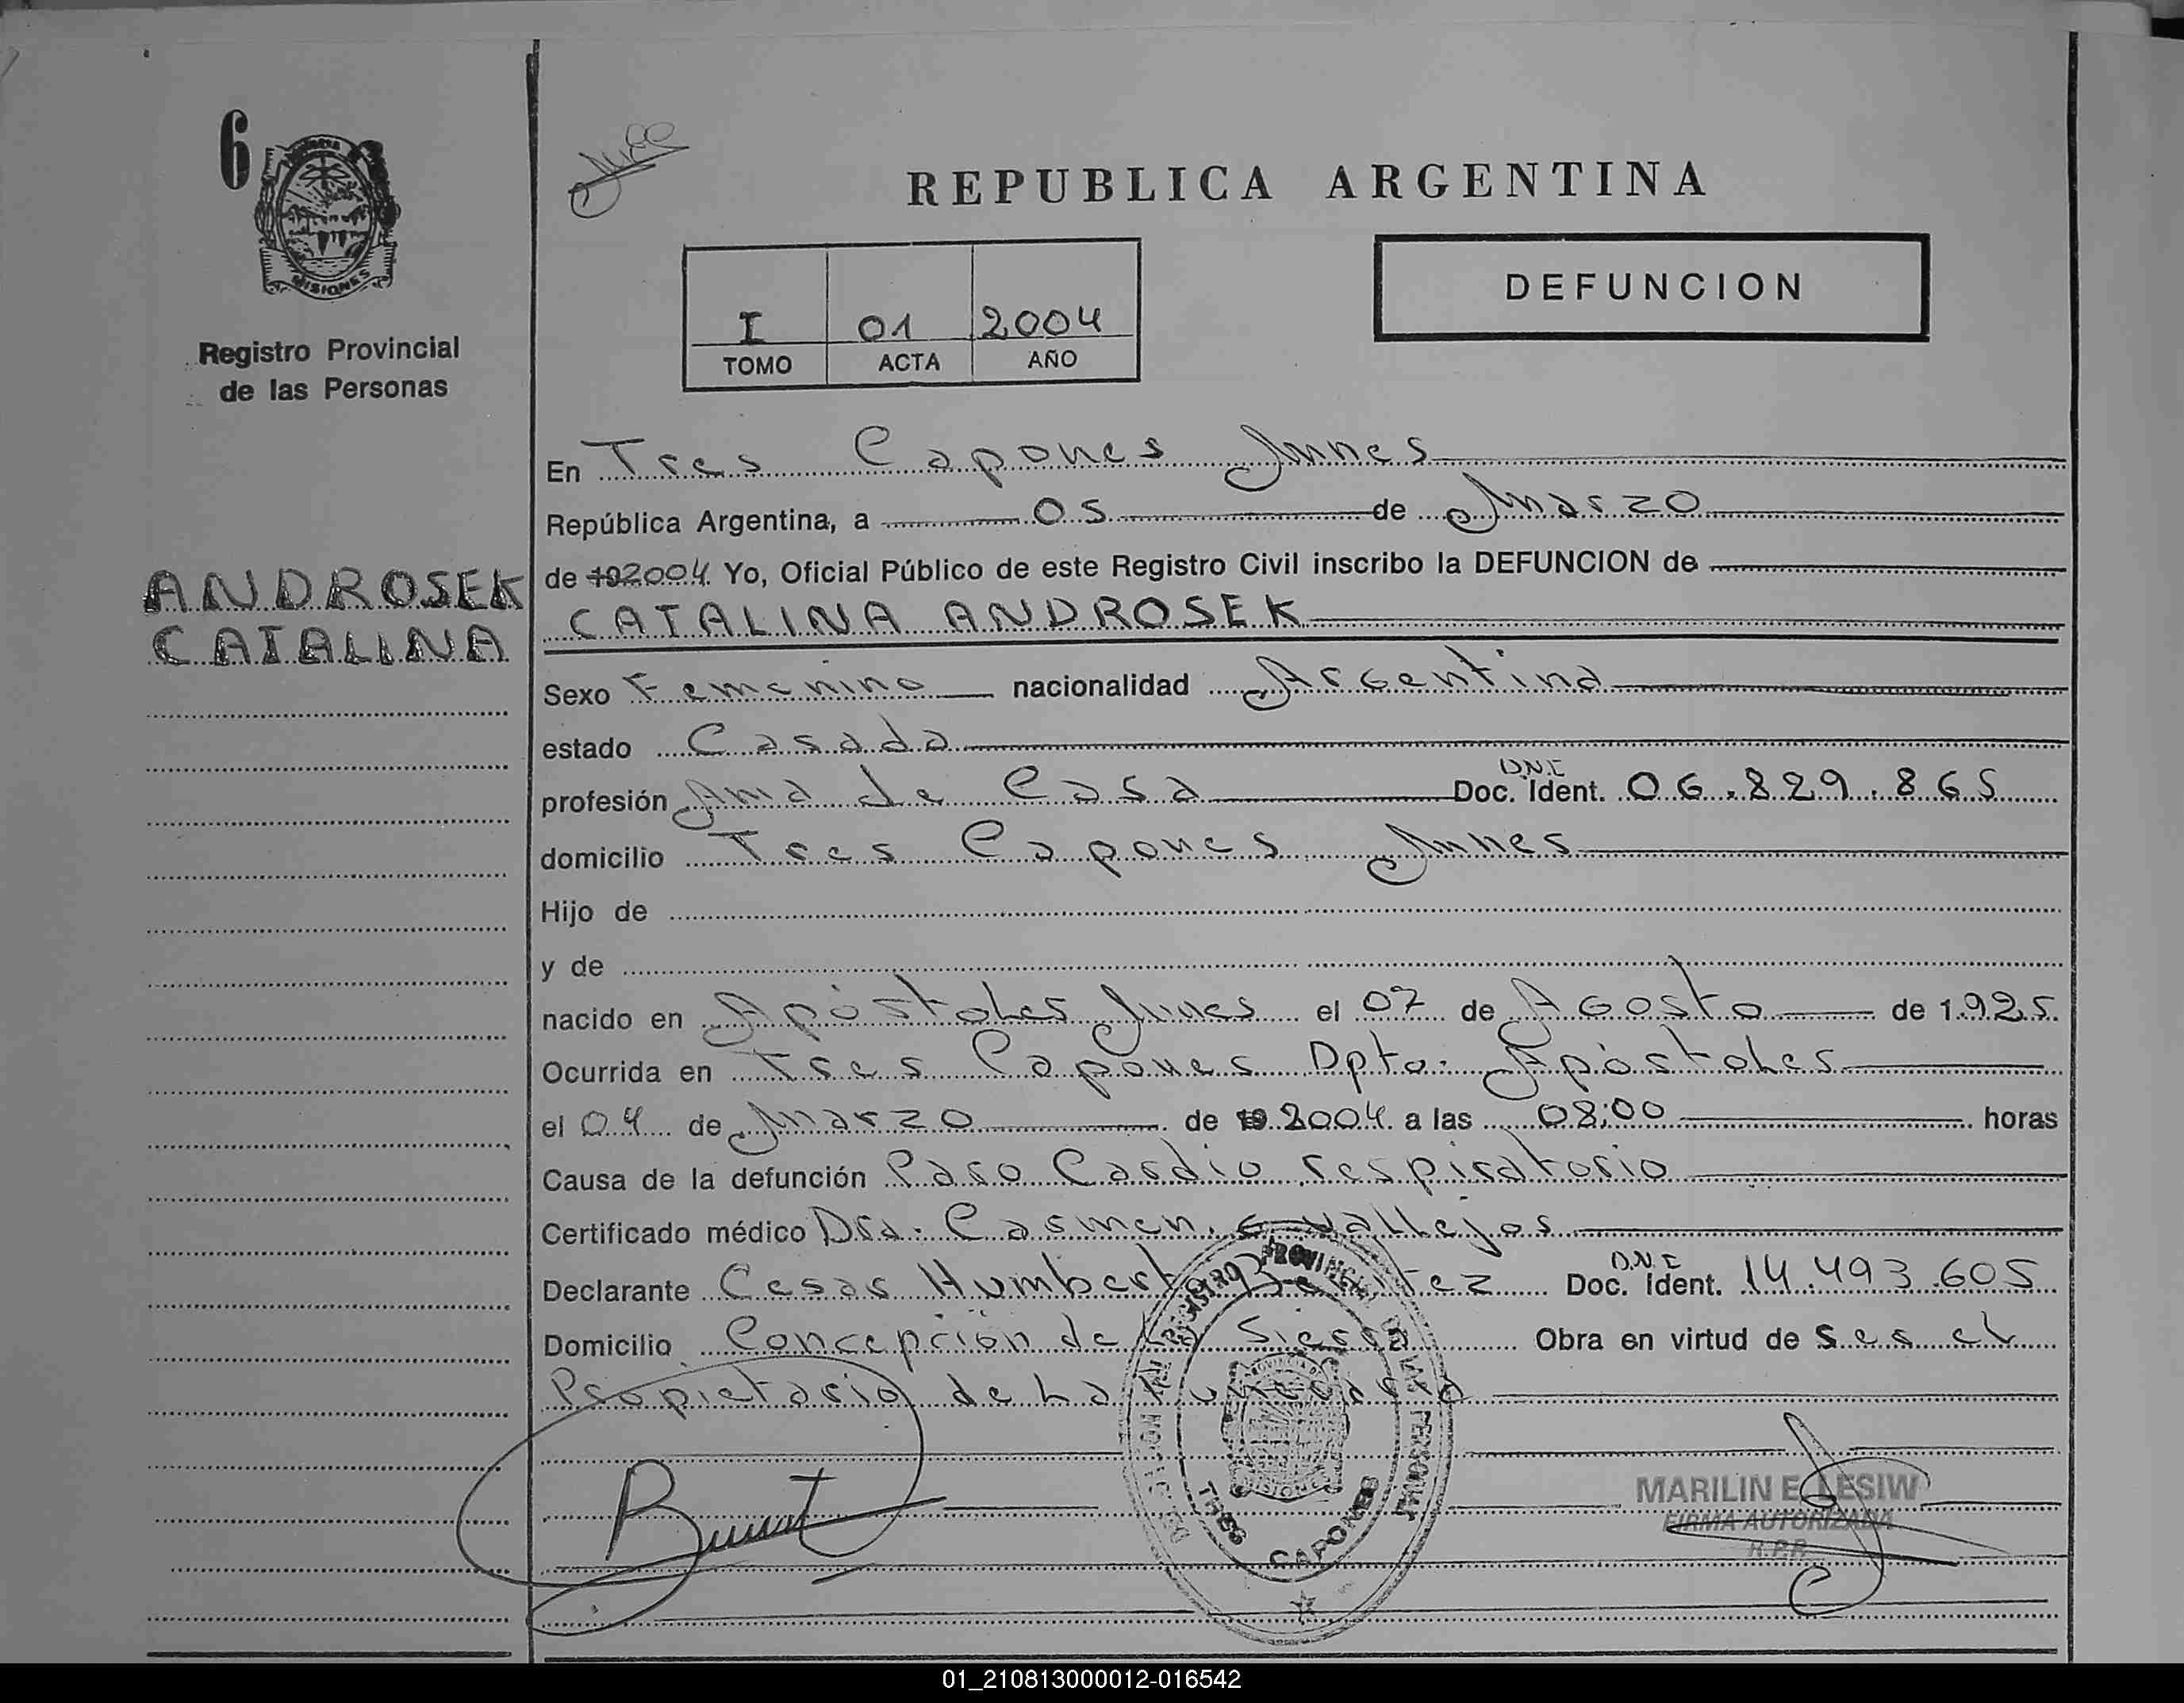 6
MISIONES
Registro Provincial
de las Personas
REPUBLICA ARGENTINA
DEFUNCION
I 01 2004
TOMO ACTA AÑO
En Tres Capones Mnes
República Argentina, a 05 de Marzo
de 192004 Yo, Oficial Público de este Registro Civil inscribo la DEFUNCION de
ANDROSEK
CATALINA
CATALINA ANDROSEK
Sexo Femenino nacionalidad Argentina
estado Casada
D.N.I
profesión Ama de Casa Doc. Ident. 06.829.865
domicilio Tres Capones Mnes
Hijo de
y de
nacido en Apóstoles Mnes el 07 de Agosto de 1.925.
Ocurrida en Tres Capones Dpto. Apóstoles
el 04 de Marzo de 19 2004. a las 08:00 horas
Causa de la defunción Paro Cardio respiratorio
Certificado médico Dra. Carmen. G Vallejos
D.N.I
Declarante Cesar Humberto Doc. Ident. 14.493.605
Domicilio Concepción de la Sierra Obra en virtud de Ser el
Propietario de La
REGISTRO PROVINCIAL DE LAS PERSONAS
MISIONES
TRES CAPONES
MARILIN E. LESIW
FIRMA AUTORIZADA
R.P.P.
01_210813000012-016542